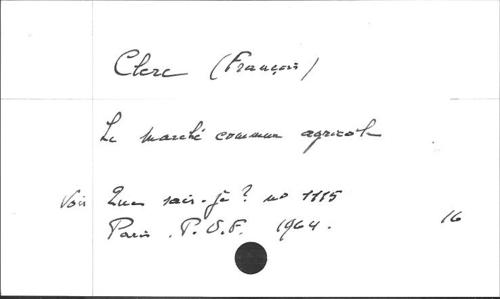 Clerc (François)
Le marché commun agricole
Voir Que sais-je ? no 1115
Paris. P.U.F. 1964. 16